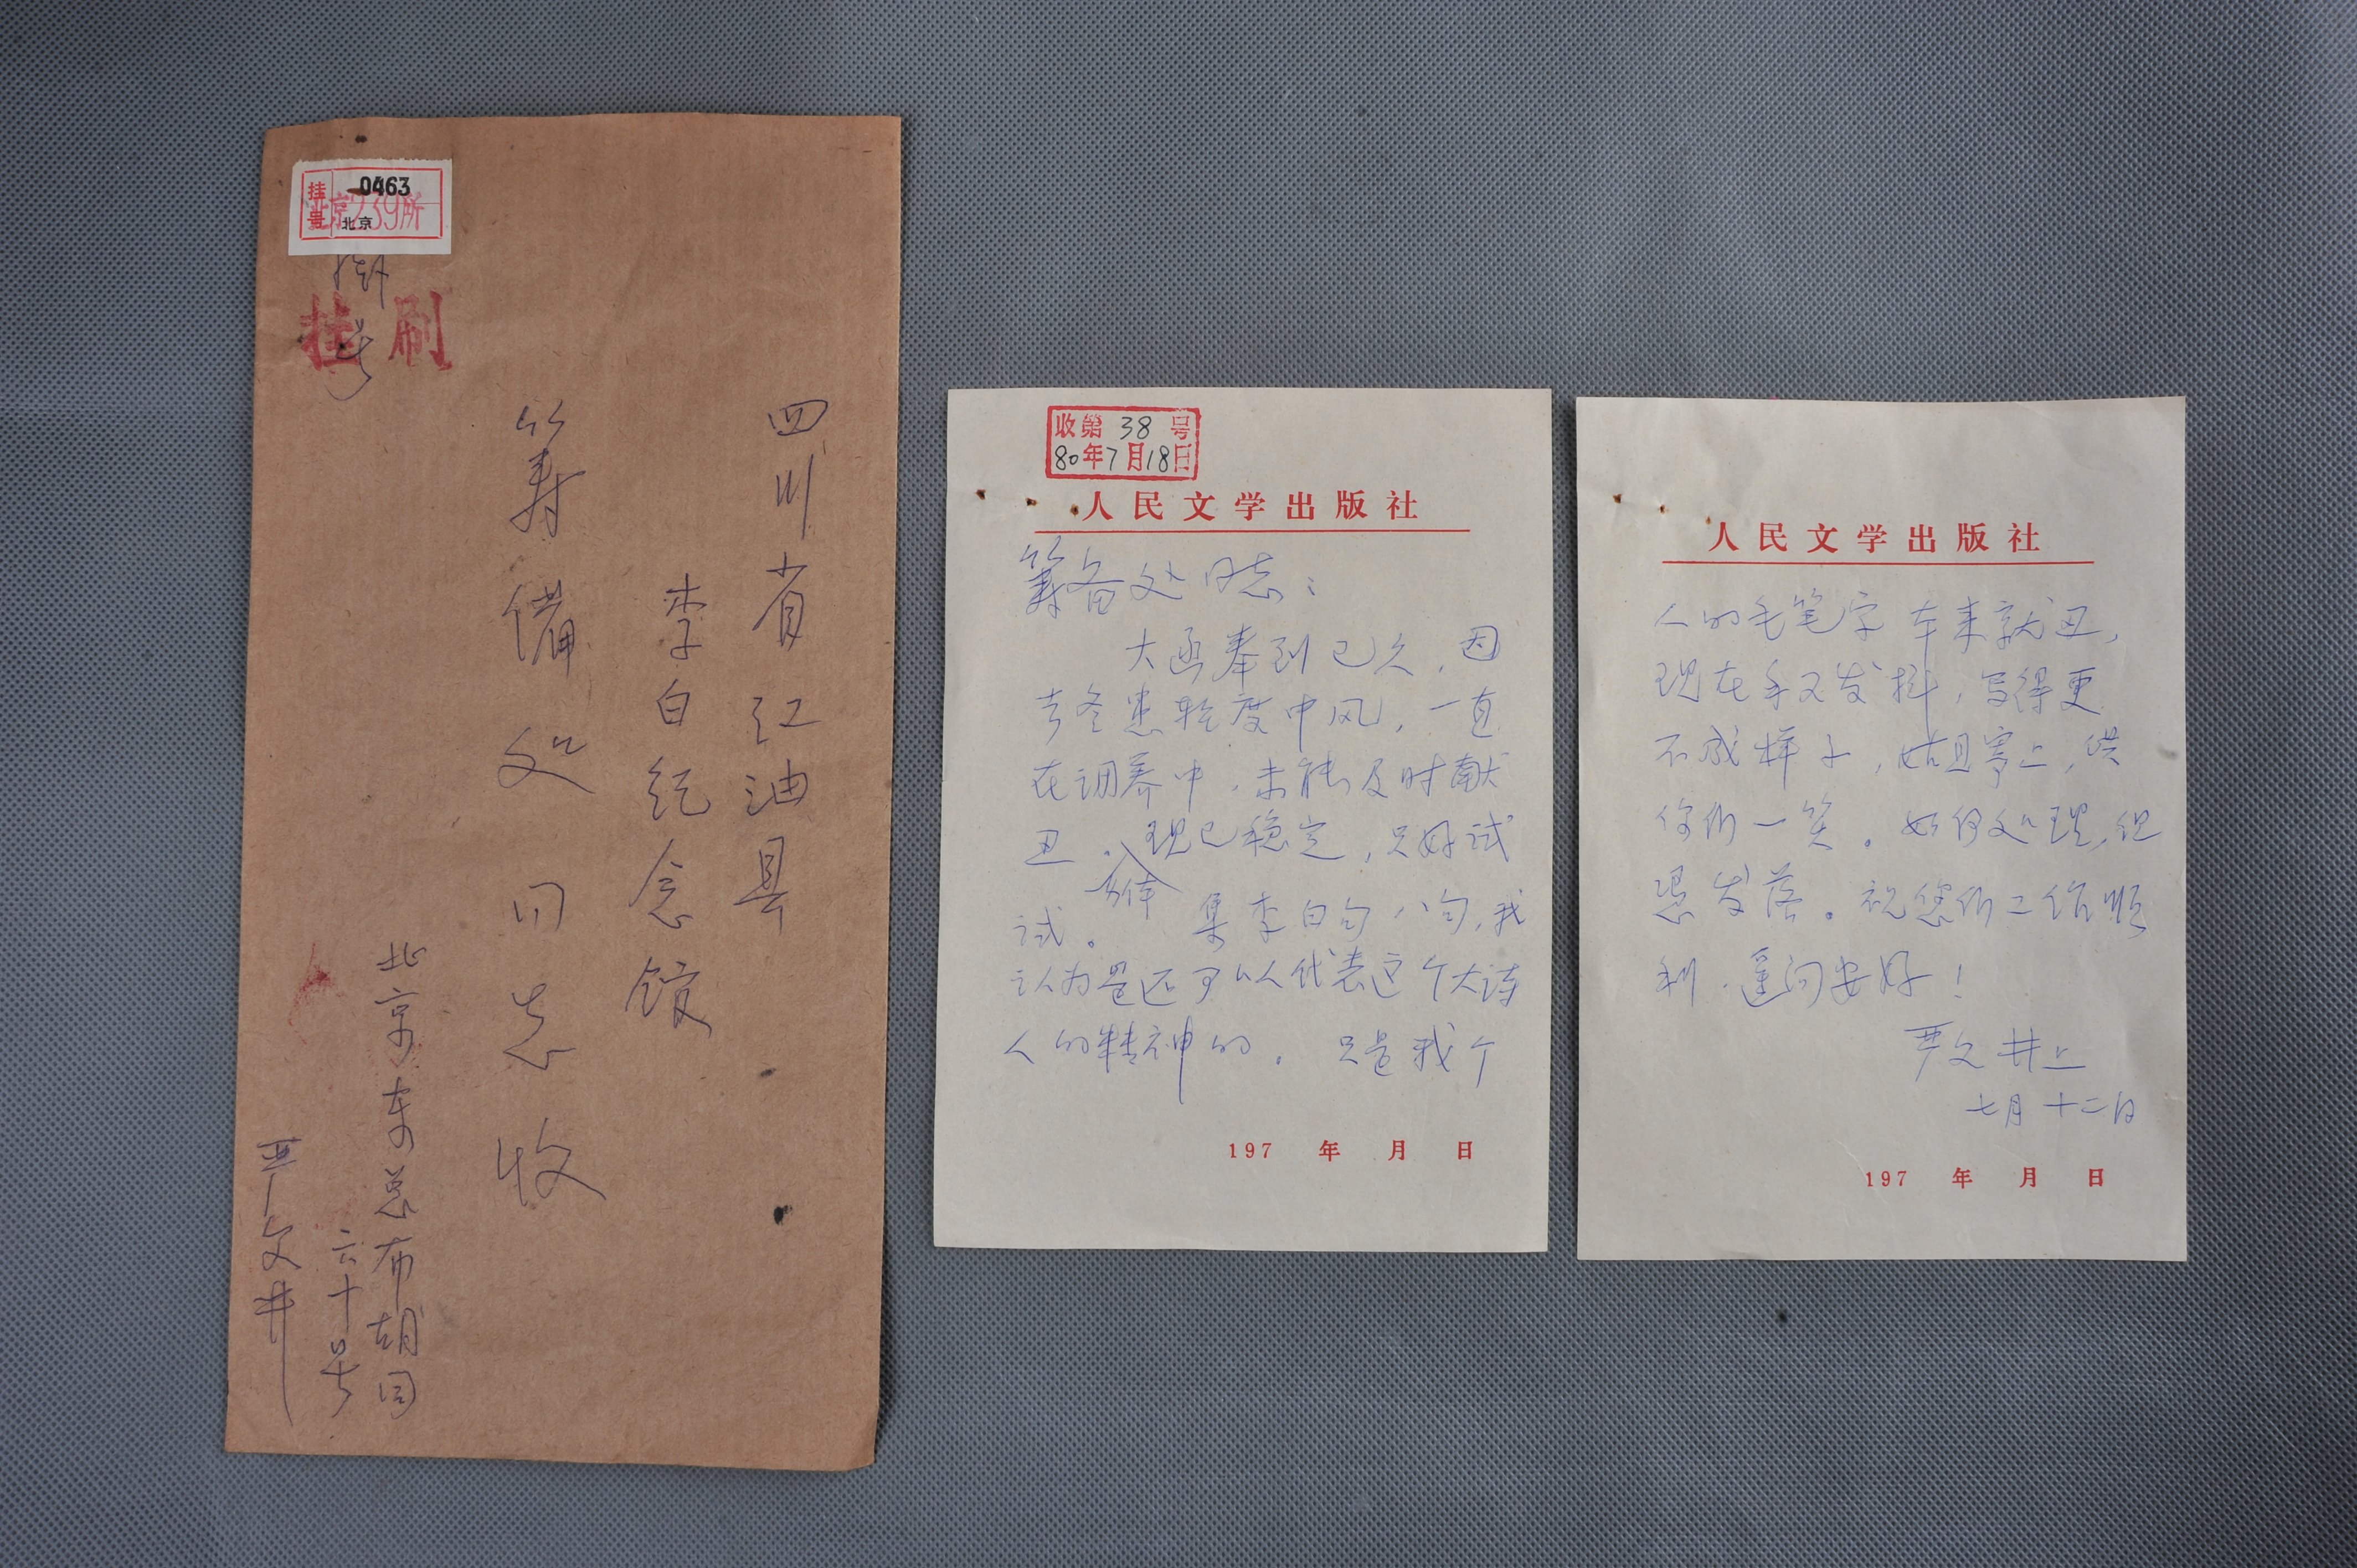 挂号
0463
北京
北京239所
掛号
挂刷
四川省江油县
李白纪念馆
筹備处同志收
北京东总布胡同
六十号
严文井
收第38号
80年7月18日
人民文学出版社
筹备处同志：
大函奉到已久，因
去冬患轻度中风，一直
在调养中，未能及时献
丑。现已稳定，只好试
试。
集李白句八句，我
认为是还可以代表这个大诗
人的精神的。只是我个
197 年 月 日
人民文学出版社
人的毛笔字本来就丑，
现在手又发抖，写得更
不成样子，姑且寄上，供
你们一笑。如何处理，但
凭发落。祝您们工作顺
利，遥问安好！
严文井上
七月十二日
197 年 月 日